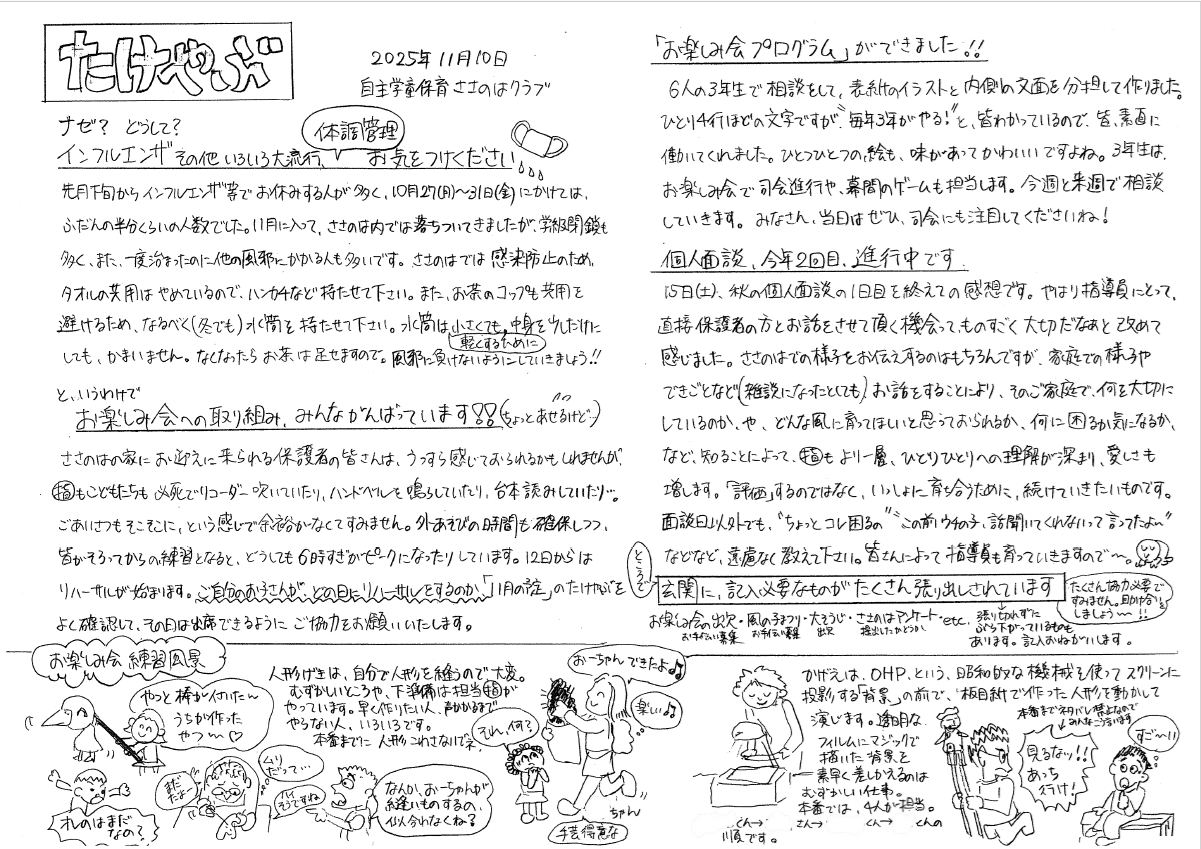 たけやぶ
2025年11月10日
自主学童保育 ささのはクラブ
ナゼ？ どうして？
体調管理
インフルエンザ その他 いろいろ大流行、お気をつけください
先月下旬からインフルエンザ等でお休みする人が多く、10月27(月)〜31日(金)にかけては、
ふだんの半分くらいの人数でした。11月に入って、ささのは内では落ちついてきましたが、学級閉鎖も
多く、また、一度治まったのに他の風邪にかかる人も多いです。ささのはでは感染防止のため、
タオルの共用はやめているので、ハンカチなど持たせて下さい。また、お茶のコップも共用を
避けるため、なるべく(冬でも)水筒を持たせて下さい。水筒は小さくても、中身を少しだけに
軽くするために
しても、かまいません。なくなったらお茶は足せますので。風邪に負けないようにしていきましょう!!
と、いうわけで
お楽しみ会への取り組み、みんながんばっています!!(ちょっとあせるけど…)
ささのはの家にお迎えに来られる保護者の皆さんは、うっすら感じておられるかもしれませんが、
指もこどもたちも必死でリコーダー吹いていたり、ハンドベルを鳴らしていたり、台本読みしていたり…。
ごあいさつもそこそこに、という感じで余裕がなくてすみません。外あそびの時間も確保しつつ、
皆がそろってからの練習となると、どうしても6時すぎがピークになったりしています。12日からは
リハーサルが始まります。ご自分のお子さんが、どの日にリハーサルをするのか、「11月の予定」のたけやぶを
よく確認して、その日は出席できるようにご協力をお願いいたします。
「お楽しみ会プログラム」ができました!!
6人の3年生で相談をして、表紙のイラストと内側の文面を分担して作りました。
ひとり4行ほどの文字ですが、"毎年3年がやる!"と、皆わかっているので、皆、素直に
働いてくれました。ひとつひとつの絵も、味があってかわいいですよね。3年生は、
お楽しみ会で司会進行や、幕間のゲームも担当します。今週と来週で相談
していきます。みなさん、当日はぜひ、司会にも注目してくださいね！
個人面談、今年2回目、進行中です
15日(土)、秋の個人面談の1日目を終えての感想です。やはり指導員にとって、
直接保護者の方とお話をさせて頂く機会ってものすごく大切だなあと改めて
感じました。ささのはでの様子をお伝えするのはもちろんですが、家庭での様子や
できごとなど(雑談になったとしても)お話をすることにより、そのご家庭で、何を大切に
しているのか、や、どんな風に育ってほしいと思っておられるか、何に困るか気になるか、
など、知ることによって、指もより一層、ひとりひとりへの理解が深まり、愛しさも
増します。「評価」するのではなく、いっしょに育ち合うために、続けていきたいものです。
面談日以外でも、"ちょっとコレ困るの" "この前ウチの子、話聞いてくれないって言ってたよ〜"
などなど、遠慮なく教えて下さい。皆さんによって指導員も育っていきますので〜。
ところで
玄関に、記入必要なものがたくさん張り出しされています
たくさん協力必要で
すみません。助け合い
しましょう〜!!
お楽しみ会の出欠・風の子まつり・大そうじ・ささのはアンケート・etc.
お手伝い募集 お手伝い募集 出欠 提出したかどうか
張り切れずに
ぶら下がっているものも
あります。記入おねがいします。
お楽しみ会 練習風景
やっと棒が付いた〜
うちが作った
やつ〜♡
オレのはまだ
なの？
まだ
だよー
ムリ
だって…
ハイ
そうですね
人形げきは、自分で人形を縫うので大変。
むずかしいところや、下準備は担当指が
やっています。早く作りたい人、声かかるまで
やらない人、いろいろです。
本番までに人形こわさないで笑
なんか、おーちゃんが
縫いものするの、
似合わなくね？
おーちゃん できたよ♪
楽しい♪
それ、何？
ちゃん
手芸得意な
かげえは、OHP、という、昭和的な機械を使ってスクリーンに
投影する「背景」の前で、板目紙で作った人形を動かして
演じます。透明な
フィルムにマジックで
描いた背景を
素早く差しかえるのは
むずかしい仕事。
本番では、4人が担当。
くん→ さん→ くん→ くんの
順です。
本番までネタバレ禁止なので
みんなこういいます
見るなッ!!
あっち
行け！
すご〜い